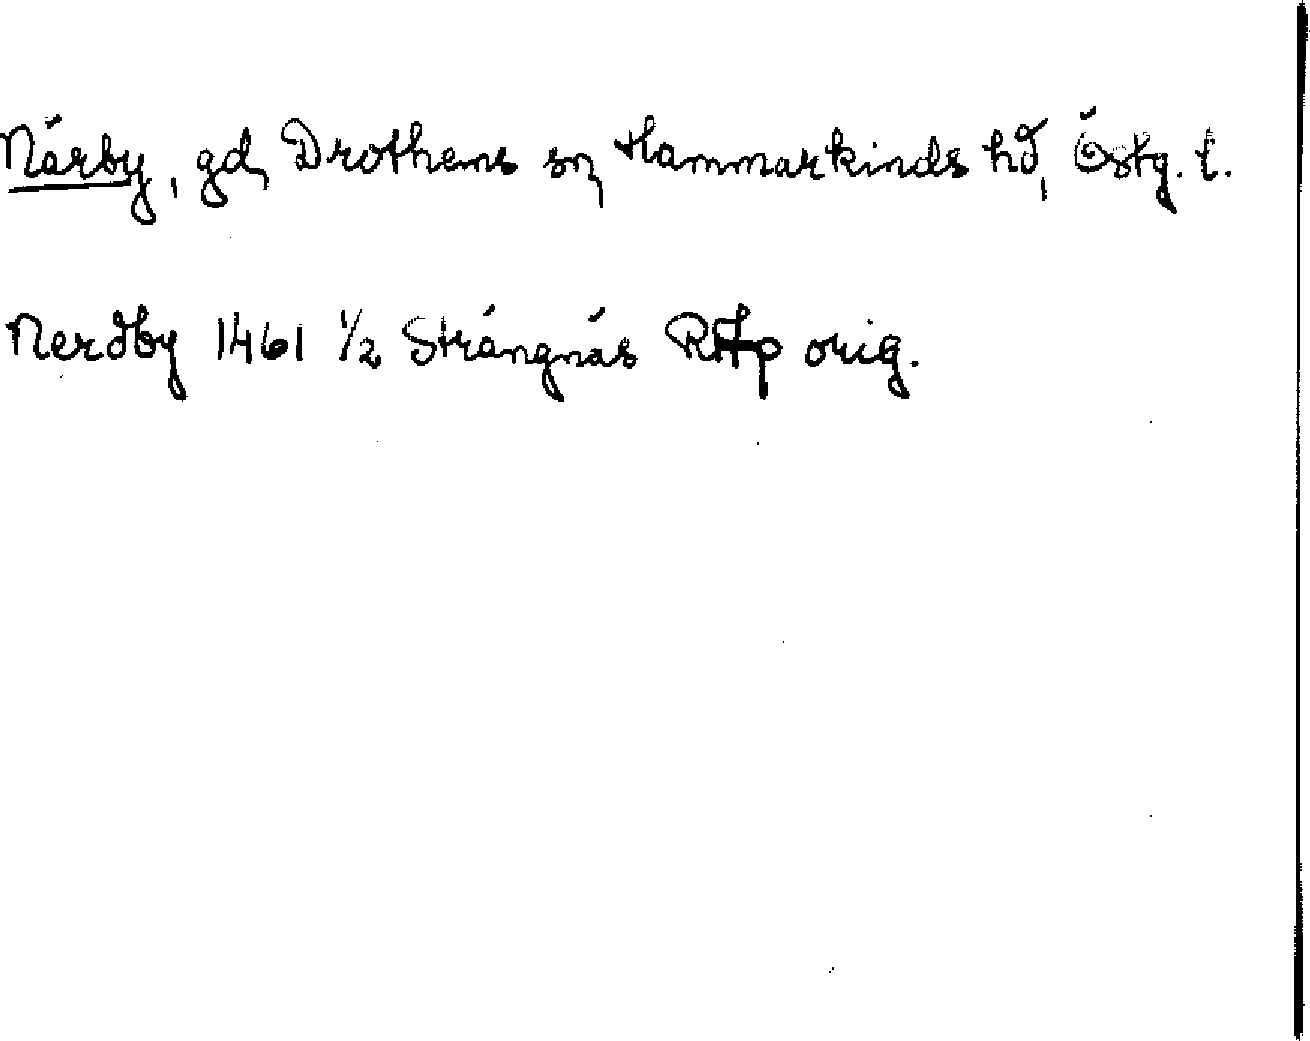 Närby, gd, Drothems sn, Hammarkinds hd, Östg. l.
Nerdby 1461 1/2 Strängnäs RAp orig.